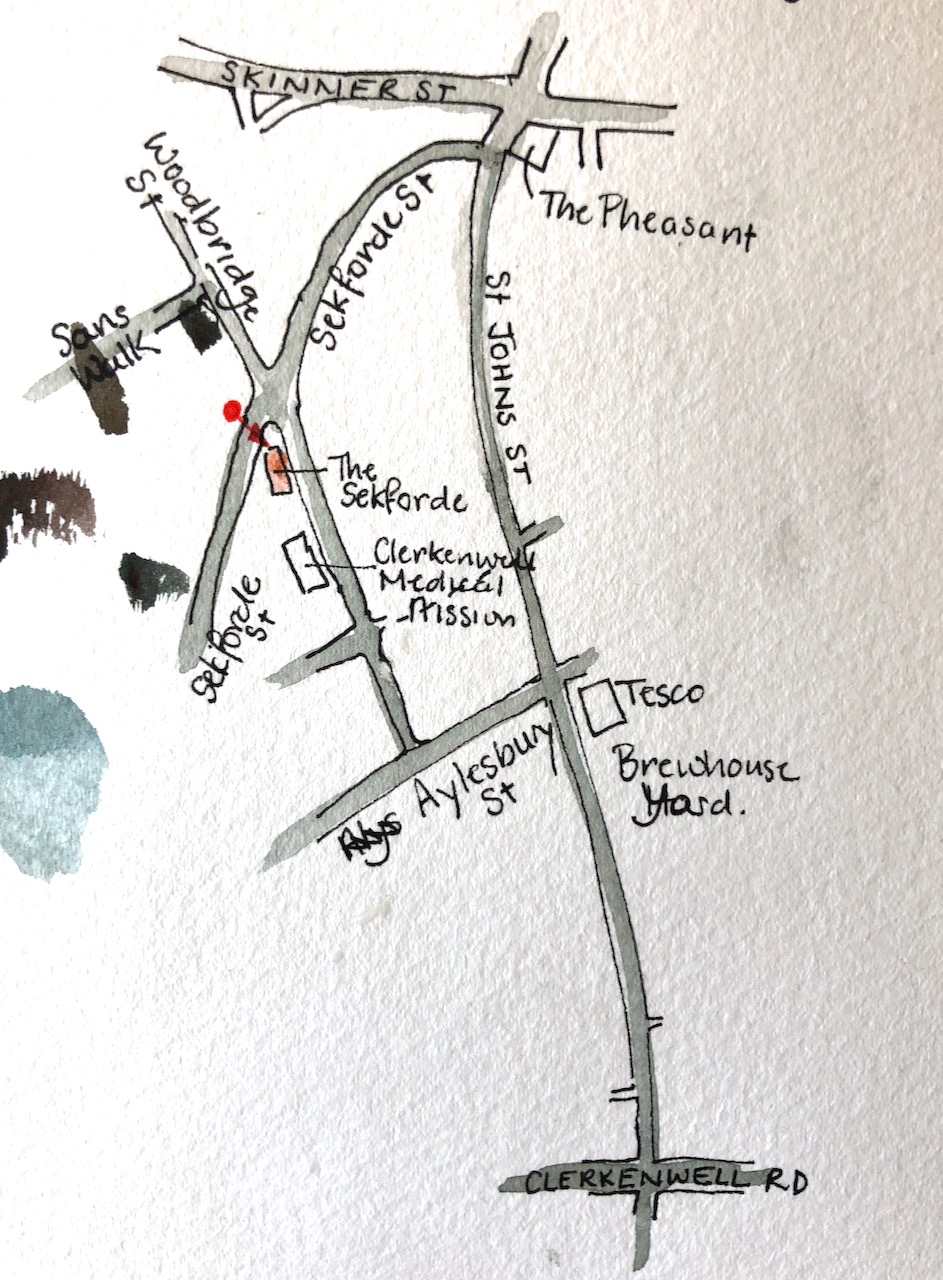 SKINNER ST
Woodbridge
St
Sekforde St
The Pheasant
St JOHNS ST
Sans
Walk
The
Sekforde
Clerkenwell
Medical
Mission
Sekforde
St
Tesco
Brewhouse
Yard.
Aylesbury
St
CLERKENWELL RD